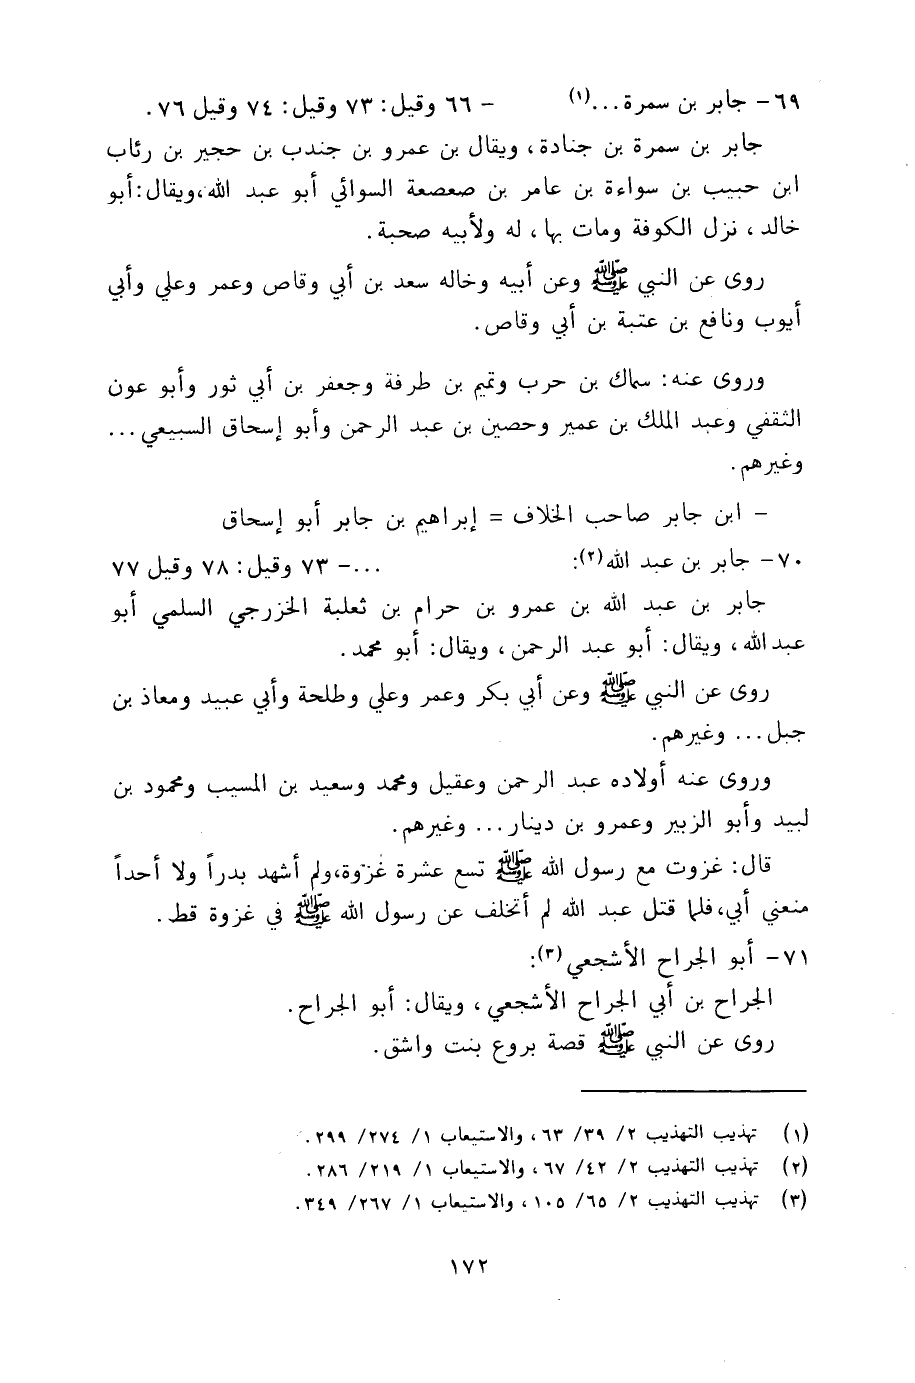 ٦٩- جابر بن سمرة...(١) - ٦٦ وقيل: ٧٣ وقيل: ٧٤ وقيل ٧٦.
جابر بن سمرة بن جنادة، ويقال بن عمرو بن جندب بن حجير بن رئاب
ابن حبيب بن سواءة بن عامر بن صعصعة السوائي أبو عبد الله،ويقال:أبو
خالد، نزل الكوفة ومات بها، له ولأبيه صحبة.
روى عن النبي ﷺ وعن أبيه وخاله سعد بن أبي وقاص وعمر وعلي وأبي
أيوب ونافع بن عتبة بن أبي وقاص.
وروى عنه: سماك بن حرب وتميم بن طرفة وجعفر بن أبي ثور وأبو عون
الثقفي وعبد الملك بن عمير وحصين بن عبد الرحمن وأبو إسحاق السبيعي...
وغيرهم.
- ابن جابر صاحب الخلاف = إبراهيم بن جابر أبو إسحاق
٧٠- جابر بن عبد الله(٢): ...- ٧٣ وقيل: ٧٨ وقيل ٧٧
جابر بن عبد الله بن عمرو بن حرام بن ثعلبة الخزرجي السلمي أبو
عبدالله، ويقال: أبو عبد الرحمن، ويقال: أبو محمد.
روى عن النبي ﷺ وعن أبي بكر وعمر وعلي وطلحة وأبي عبيد ومعاذ بن
جبل... وغيرهم.
وروى عنه أولاده عبد الرحمن وعقيل ومحمد وسعيد بن المسيب ومحمود بن
لبيد وأبو الزبير وعمرو بن دينار... وغيرهم.
قال: غزوت مع رسول الله ﷺ تسع عشرة غزوة،ولم أشهد بدراً ولا أحداً
منعني أبي،فلما قتل عبد الله لم أتخلف عن رسول الله ﷺ في غزوة قط.
٧١- أبو الجراح الأشجعي(٣):
الجراح بن أبي الجراح الأشجعي، ويقال: أبو الجراح.
روى عن النبي ﷺ قصة بروع بنت واشق.
(١) تهذيب التهذيب ٢/ ٣٩/ ٦٣، والاستيعاب ١/ ٢٧٤/ ٢٩٩.
(٢) تهذيب التهذيب ٢/ ٤٢/ ٦٧، والاستيعاب ١/ ٢١٩/ ٢٨٦.
(٣) تهذيب التهذيب ٢/ ٦٥/ ١٠٥، والاستيعاب ١/ ٢٦٧/ ٣٤٩.
١٧٢